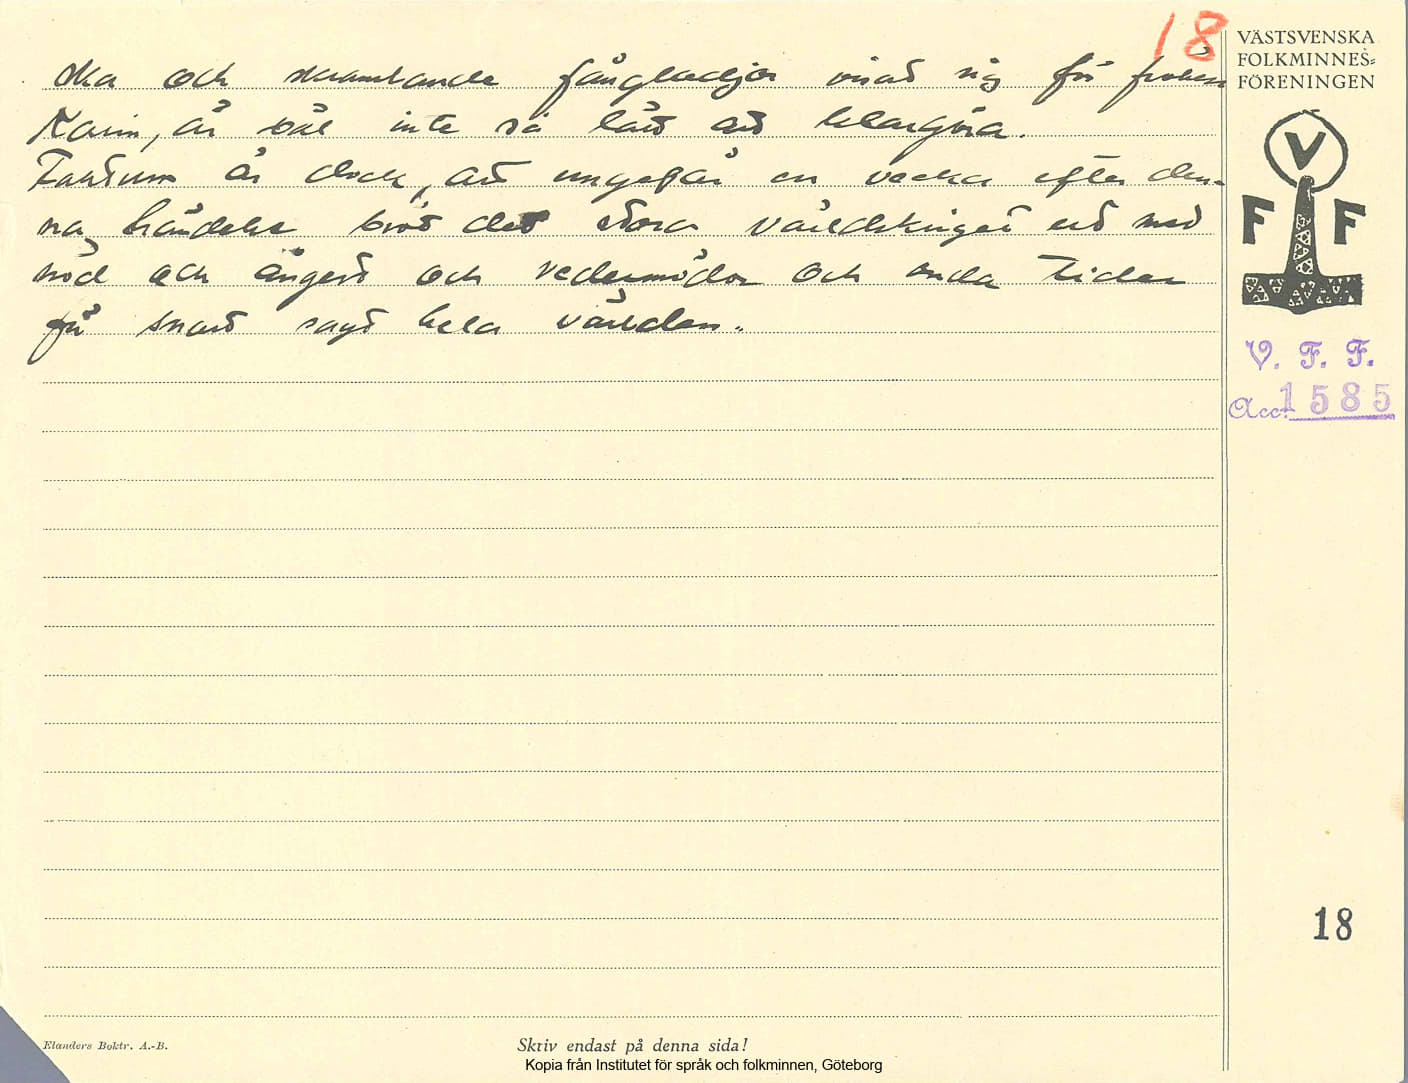 18
ska och skramlande fångkedjor visat sig för fröken
Karin, är väl inte så lätt att klargöra.
Faktum är dock, att ungefär en vecka efter den-
na händelse bröt det stora världskriget ut med
nöd och ångest och vedermödor och onda tider
för snart sagt hela världen.
VÄSTSVENSKA
FOLKMINNES-
FÖRENINGEN
V
F F
V. F. F.
Acc. 1585
18
Elanders Boktr. A.-B.
Skriv endast på denna sida!
Kopia från Institutet för språk och folkminnen, Göteborg